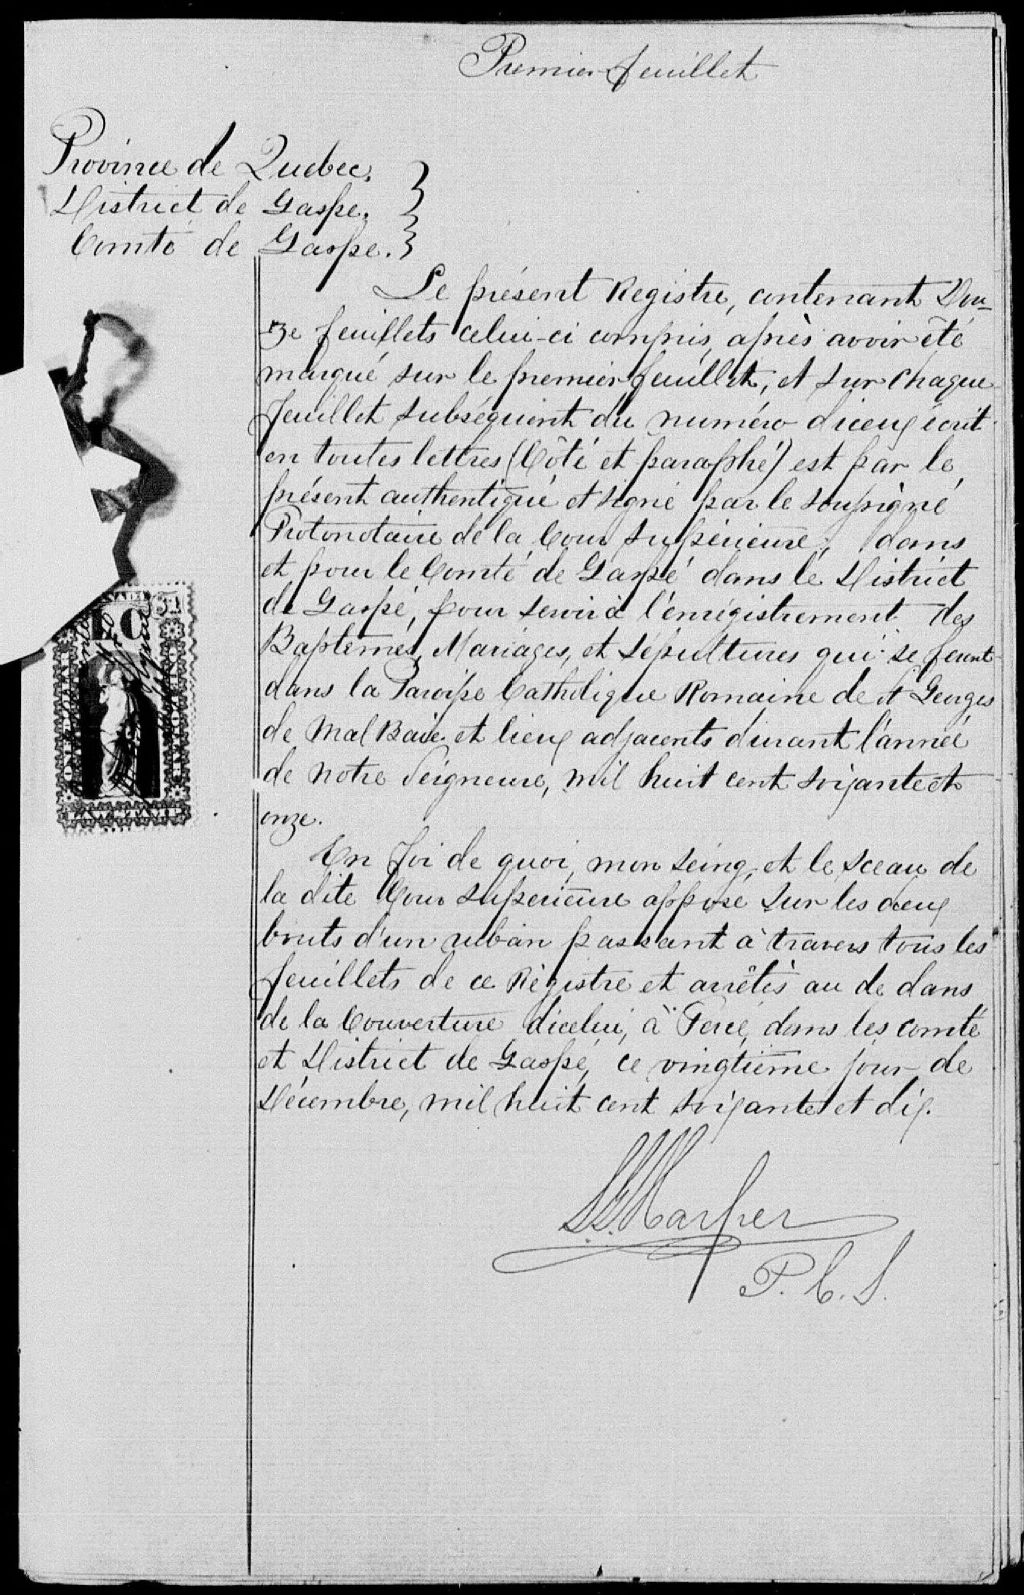 Premier feuillet
Province de Quebec.
District de Gaspe.
Comté de Gaspe.
Le présent Registre, contenant Dou-
ze feuillets celui-ci compris, après avoir été
marqué sur le premier feuillet, et sur chaque
feuillet subséquent du numéro d'iceux écrit
en toutes lettres (Côté et paraphé) est par le
présent authentiqué et signé par le soussigné
Protonotaire de la Cour Supérieure, dans
et pour le Comté de Gaspé dans le District
de Gaspé, pour servir à l'enrégistrement des
Baptemes, Mariages, et Sépultures qui se feront
dans la Paroisse Catholique Romaine de St Georges
de Mal Baie et lieux adjacents durant l'année
de notre Seigneure, mil huit cent soixante et
onze.
En foi de quoi, mon seing, et le sceau de
la dite Cour Superieure apposé sur les deux
bouts d'un ruban passant à travers tous les
feuillets de ce Régistre et arrêtés au de dans
de la Couverture d'icelui, à Percé, dans les comté
et District de Gaspé, ce vingtième jour de
Décembre, mil huit cent soixante et dix.
Harper
P. C. S.